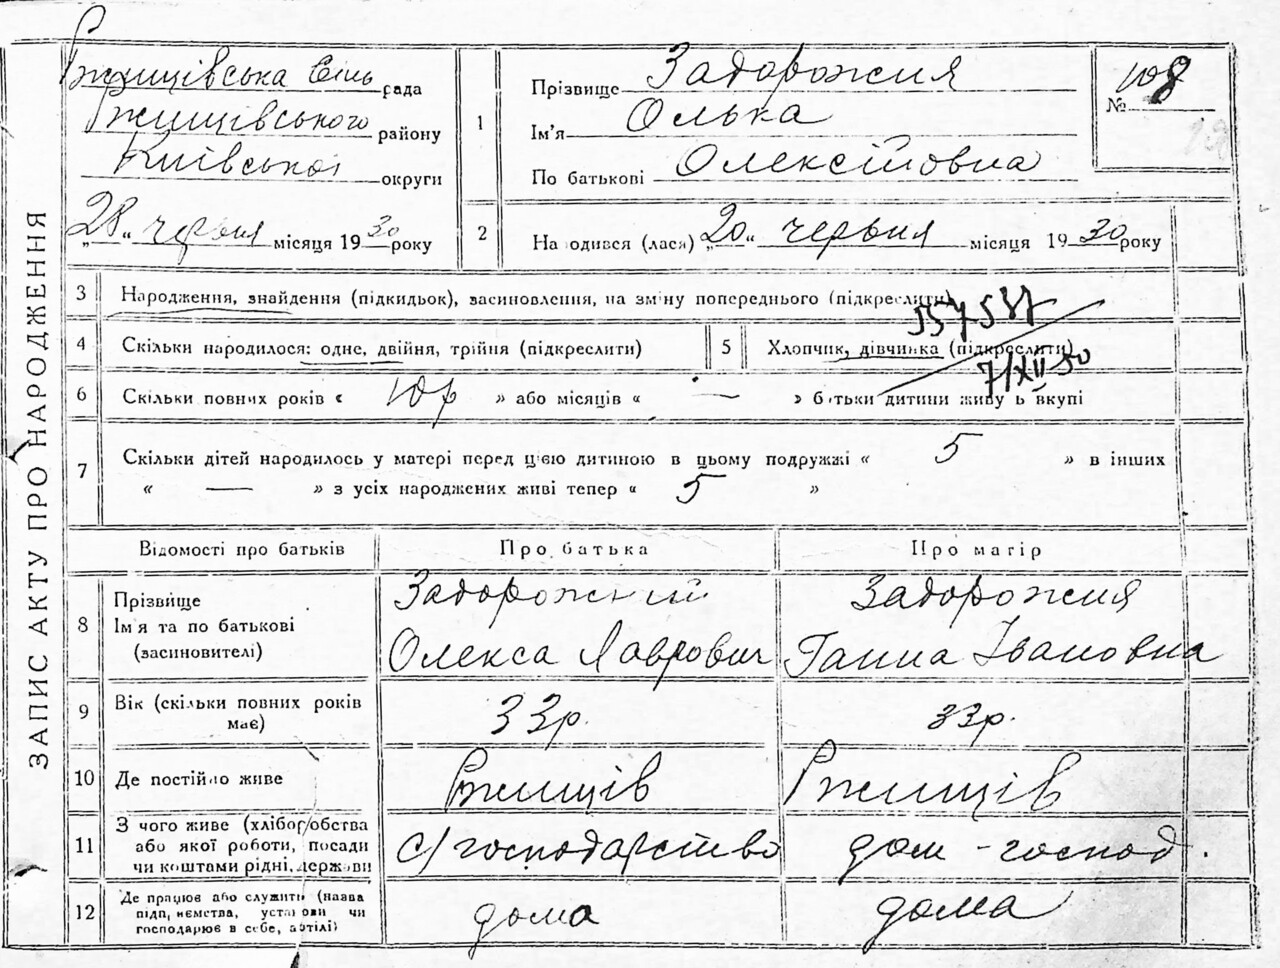 ЗАПИС АКТУ ПРО НАРОДЖЕННЯ
Ржищівська Сіль рада
Ржищівського району
Київської округи
„28“ червня місяця 1930 року
1
Прізвище Задорожня
Ім'я Олька
По батькові Олексіївна
№ 108
2
Народився (лася) „20“ червня місяця 1930 року
3 Народження, знайдення (підкидьок), засиновлення, на зміну попереднього (підкреслити)
4 Скільки народилося: одне, двійня, трійня (підкреслити)
5 Хлопчик, дівчинка (підкреслити)
7/XII 50
6 Скільки повних років « 10р » або місяців « — » батьки дитини живуть вкупі
7 Скільки дітей народилось у матері перед цією дитиною в цьому подружжі « 5 » в інших
« — » з усіх народжених живі тепер « 5 »
Відомості про батьків Про батька Про матір
8 Прізвище
Ім'я та по батькові
(засиновителі)
Задорожний
Олекса Лаврович
Задорожня
Ганна Івановна
9 Вік (скільки повних років
має) 33р. 33р.
10 Де постійно живе Ржищів Ржищів
11 З чого живе (хліборобства
або якої роботи, посади
чи коштами рідні, держави
с/господарство дом - господ.
12 Де працює або служить (назва
підприємства, установи чи
господарює в себе, артілі)
дома дома